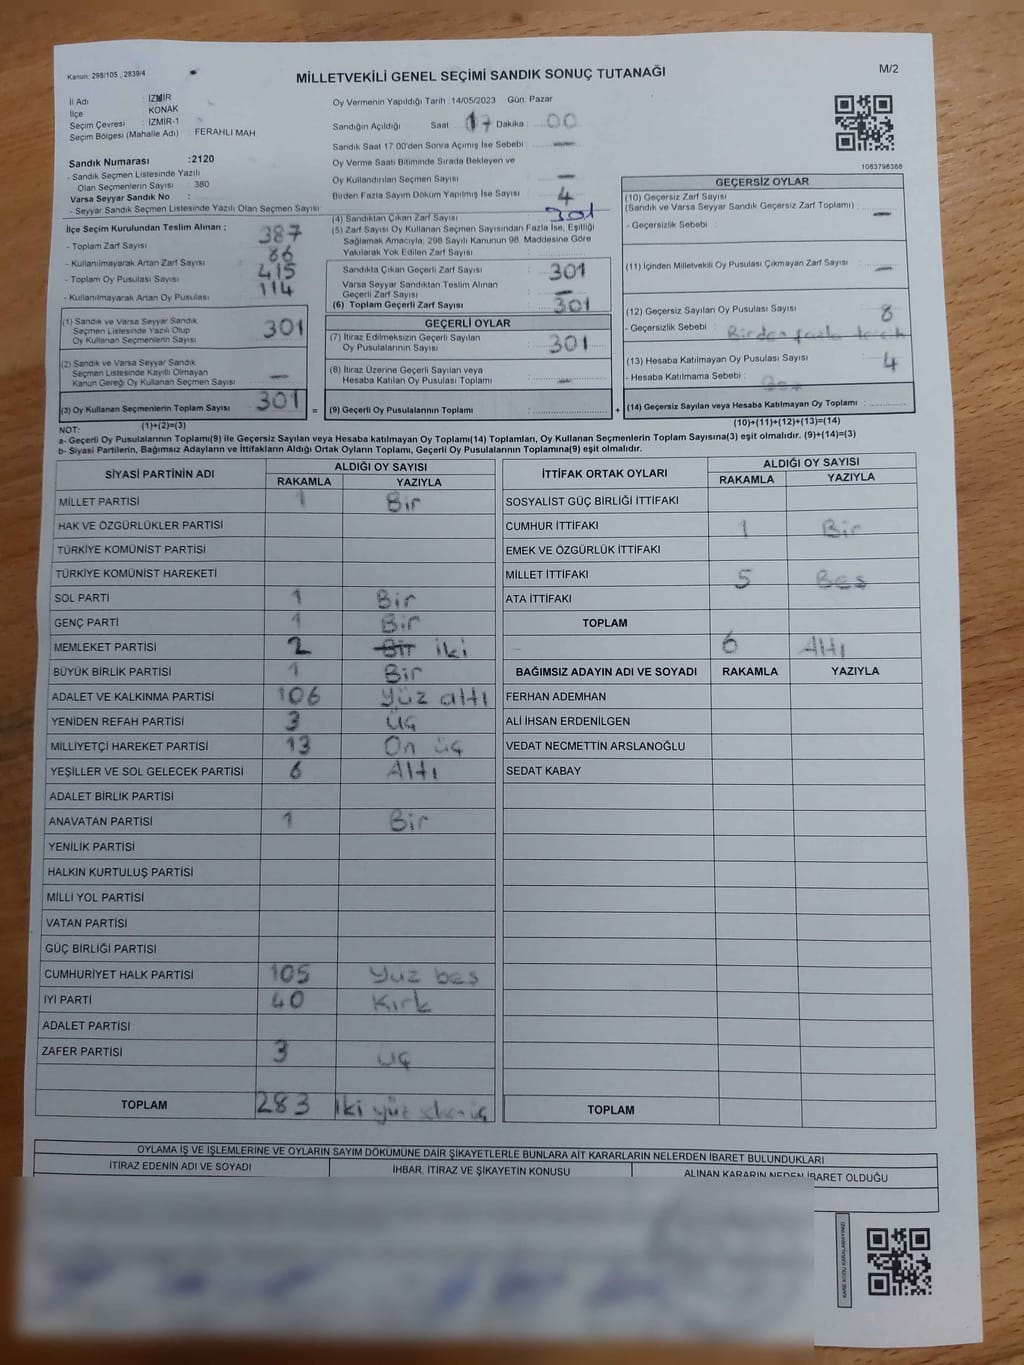 Kanun: 298/105 , 2839/4
MİLLETVEKİLİ GENEL SEÇİMİ SANDIK SONUÇ TUTANAĞI
M/2
İl Adı : İZMİR
İlçe : KONAK
Seçim Çevresi : İZMİR-1
Seçim Bölgesi (Mahalle Adı) : FERAHLI MAH
Sandık Numarası :2120
- Sandık Seçmen Listesinde Yazılı
Olan Seçmenlerin Sayısı : 380
Varsa Seyyar Sandık No :
- Seyyar Sandık Seçmen Listesinde Yazılı Olan Seçmen Sayısı
Oy Vermenin Yapıldığı Tarih : 14/05/2023 Gün: Pazar
Sandığın Açıldığı Saat : 17 Dakika : 00
Sandık Saat 17:00'den Sonra Açımış İse Sebebi : —
Oy Verme Saati Bitiminde Sırada Bekleyen ve
Oy Kullandırılan Seçmen Sayısı : —
Birden Fazla Sayım Döküm Yapılmış İse Sayısı : 4
1083798388
İlçe Seçim Kurulundan Teslim Alınan ;
- Toplam Zarf Sayısı : 387
- Kullanılmayarak Artan Zarf Sayısı : 86
- Toplam Oy Pusulası Sayısı : 415
- Kullanılmayarak Artan Oy Pusulası : 114
(1) Sandık ve Varsa Seyyar Sandık
Seçmen Listesinde Yazılı Olup
Oy Kullanan Seçmenlerin Sayısı : 301
(2) Sandık ve Varsa Seyyar Sandık
Seçmen Listesinde Kayıtlı Olmayan
Kanun Gereği Oy Kullanan Seçmen Sayısı : —
(3) Oy Kullanan Seçmenlerin Toplam Sayısı : 301
(1)+(2)=(3)
(4) Sandıktan Çıkan Zarf Sayısı : 301
(5) Zarf Sayısı Oy Kullanan Seçmen Sayısından Fazla İse, Eşitliği
Sağlamak Amacıyla, 298 Sayılı Kanunun 98. Maddesine Göre
Yakılarak Yok Edilen Zarf Sayısı :
Sandıkta Çıkan Geçerli Zarf Sayısı : 301
Varsa Seyyar Sandıktan Teslim Alınan
Geçerli Zarf Sayısı : —
(6) Toplam Geçerli Zarf Sayısı : 301
GEÇERLİ OYLAR
(7) İtiraz Edilmeksizin Geçerli Sayılan
Oy Pusulalarının Sayısı : 301
(8) İtiraz Üzerine Geçerli Sayılan veya
Hesaba Katılan Oy Pusulası Toplamı : —
= (9) Geçerli Oy Pusulalarının Toplamı :
GEÇERSİZ OYLAR
(10) Geçersiz Zarf Sayısı
(Sandık ve Varsa Seyyar Sandık Geçersiz Zarf Toplamı) : —
- Geçersizlik Sebebi :
(11) İçinden Milletvekili Oy Pusulası Çıkmayan Zarf Sayısı : —
(12) Geçersiz Sayılan Oy Pusulası Sayısı : 8
- Geçersizlik Sebebi : Birden fazla
(13) Hesaba Katılmayan Oy Pusulası Sayısı : 4
- Hesaba Katılmama Sebebi : Boş
+ (14) Geçersiz Sayılan veya Hesaba Katılmayan Oy Toplamı :
(10)+(11)+(12)+(13)=(14)
NOT:
a- Geçerli Oy Pusulalarının Toplamı(9) ile Geçersiz Sayılan veya Hesaba katılmayan Oy Toplamı(14) Toplamları, Oy Kullanan Seçmenlerin Toplam Sayısına(3) eşit olmalıdır. (9)+(14)=(3)
b- Siyasi Partilerin, Bağımsız Adayların ve İttifakların Aldığı Ortak Oyların Toplamı, Geçerli Oy Pusulalarının Toplamına(9) eşit olmalıdır.
SİYASİ PARTİNİN ADI ALDIĞI OY SAYISI
RAKAMLA YAZIYLA
MİLLET PARTİSİ 1 Bir
HAK VE ÖZGÜRLÜKLER PARTİSİ
TÜRKİYE KOMÜNİST PARTİSİ
TÜRKİYE KOMÜNİST HAREKETİ
SOL PARTİ 1 Bir
GENÇ PARTİ 1 Bir
MEMLEKET PARTİSİ 2 Bir iki
BÜYÜK BİRLİK PARTİSİ 1 Bir
ADALET VE KALKINMA PARTİSİ 106 yüz altı
YENİDEN REFAH PARTİSİ 3 üç
MİLLİYETÇİ HAREKET PARTİSİ 13 On üç
YEŞİLLER VE SOL GELECEK PARTİSİ 6 Altı
ADALET BİRLİK PARTİSİ
ANAVATAN PARTİSİ 1 Bir
YENİLİK PARTİSİ
HALKIN KURTULUŞ PARTİSİ
MİLLİ YOL PARTİSİ
VATAN PARTİSİ
GÜÇ BİRLİĞİ PARTİSİ
CUMHURİYET HALK PARTİSİ 105 Yüz beş
İYİ PARTİ 40 Kırk
ADALET PARTİSİ
ZAFER PARTİSİ 3 üç
TOPLAM 283 İki yüz seksen üç
İTTİFAK ORTAK OYLARI ALDIĞI OY SAYISI
RAKAMLA YAZIYLA
SOSYALİST GÜÇ BİRLİĞİ İTTİFAKI
CUMHUR İTTİFAKI 1 Bir
EMEK VE ÖZGÜRLÜK İTTİFAKI
MİLLET İTTİFAKI 5 Beş
ATA İTTİFAKI
TOPLAM
6 Altı
BAĞIMSIZ ADAYIN ADI VE SOYADI RAKAMLA YAZIYLA
FERHAN ADEMHAN
ALİ İHSAN ERDENİLGEN
VEDAT NECMETTİN ARSLANOĞLU
SEDAT KABAY
TOPLAM
OYLAMA İŞ VE İŞLEMLERİNE VE OYLARIN SAYIM DÖKÜMÜNE DAİR ŞİKAYETLERLE BUNLARA AİT KARARLARIN NELERDEN İBARET BULUNDUKLARI
İTİRAZ EDENİN ADI VE SOYADI İHBAR, İTİRAZ VE ŞİKAYETİN KONUSU ALINAN KARARIN NEDEN İBARET OLDUĞU
KARE KODU KARALAMAYINIZ!